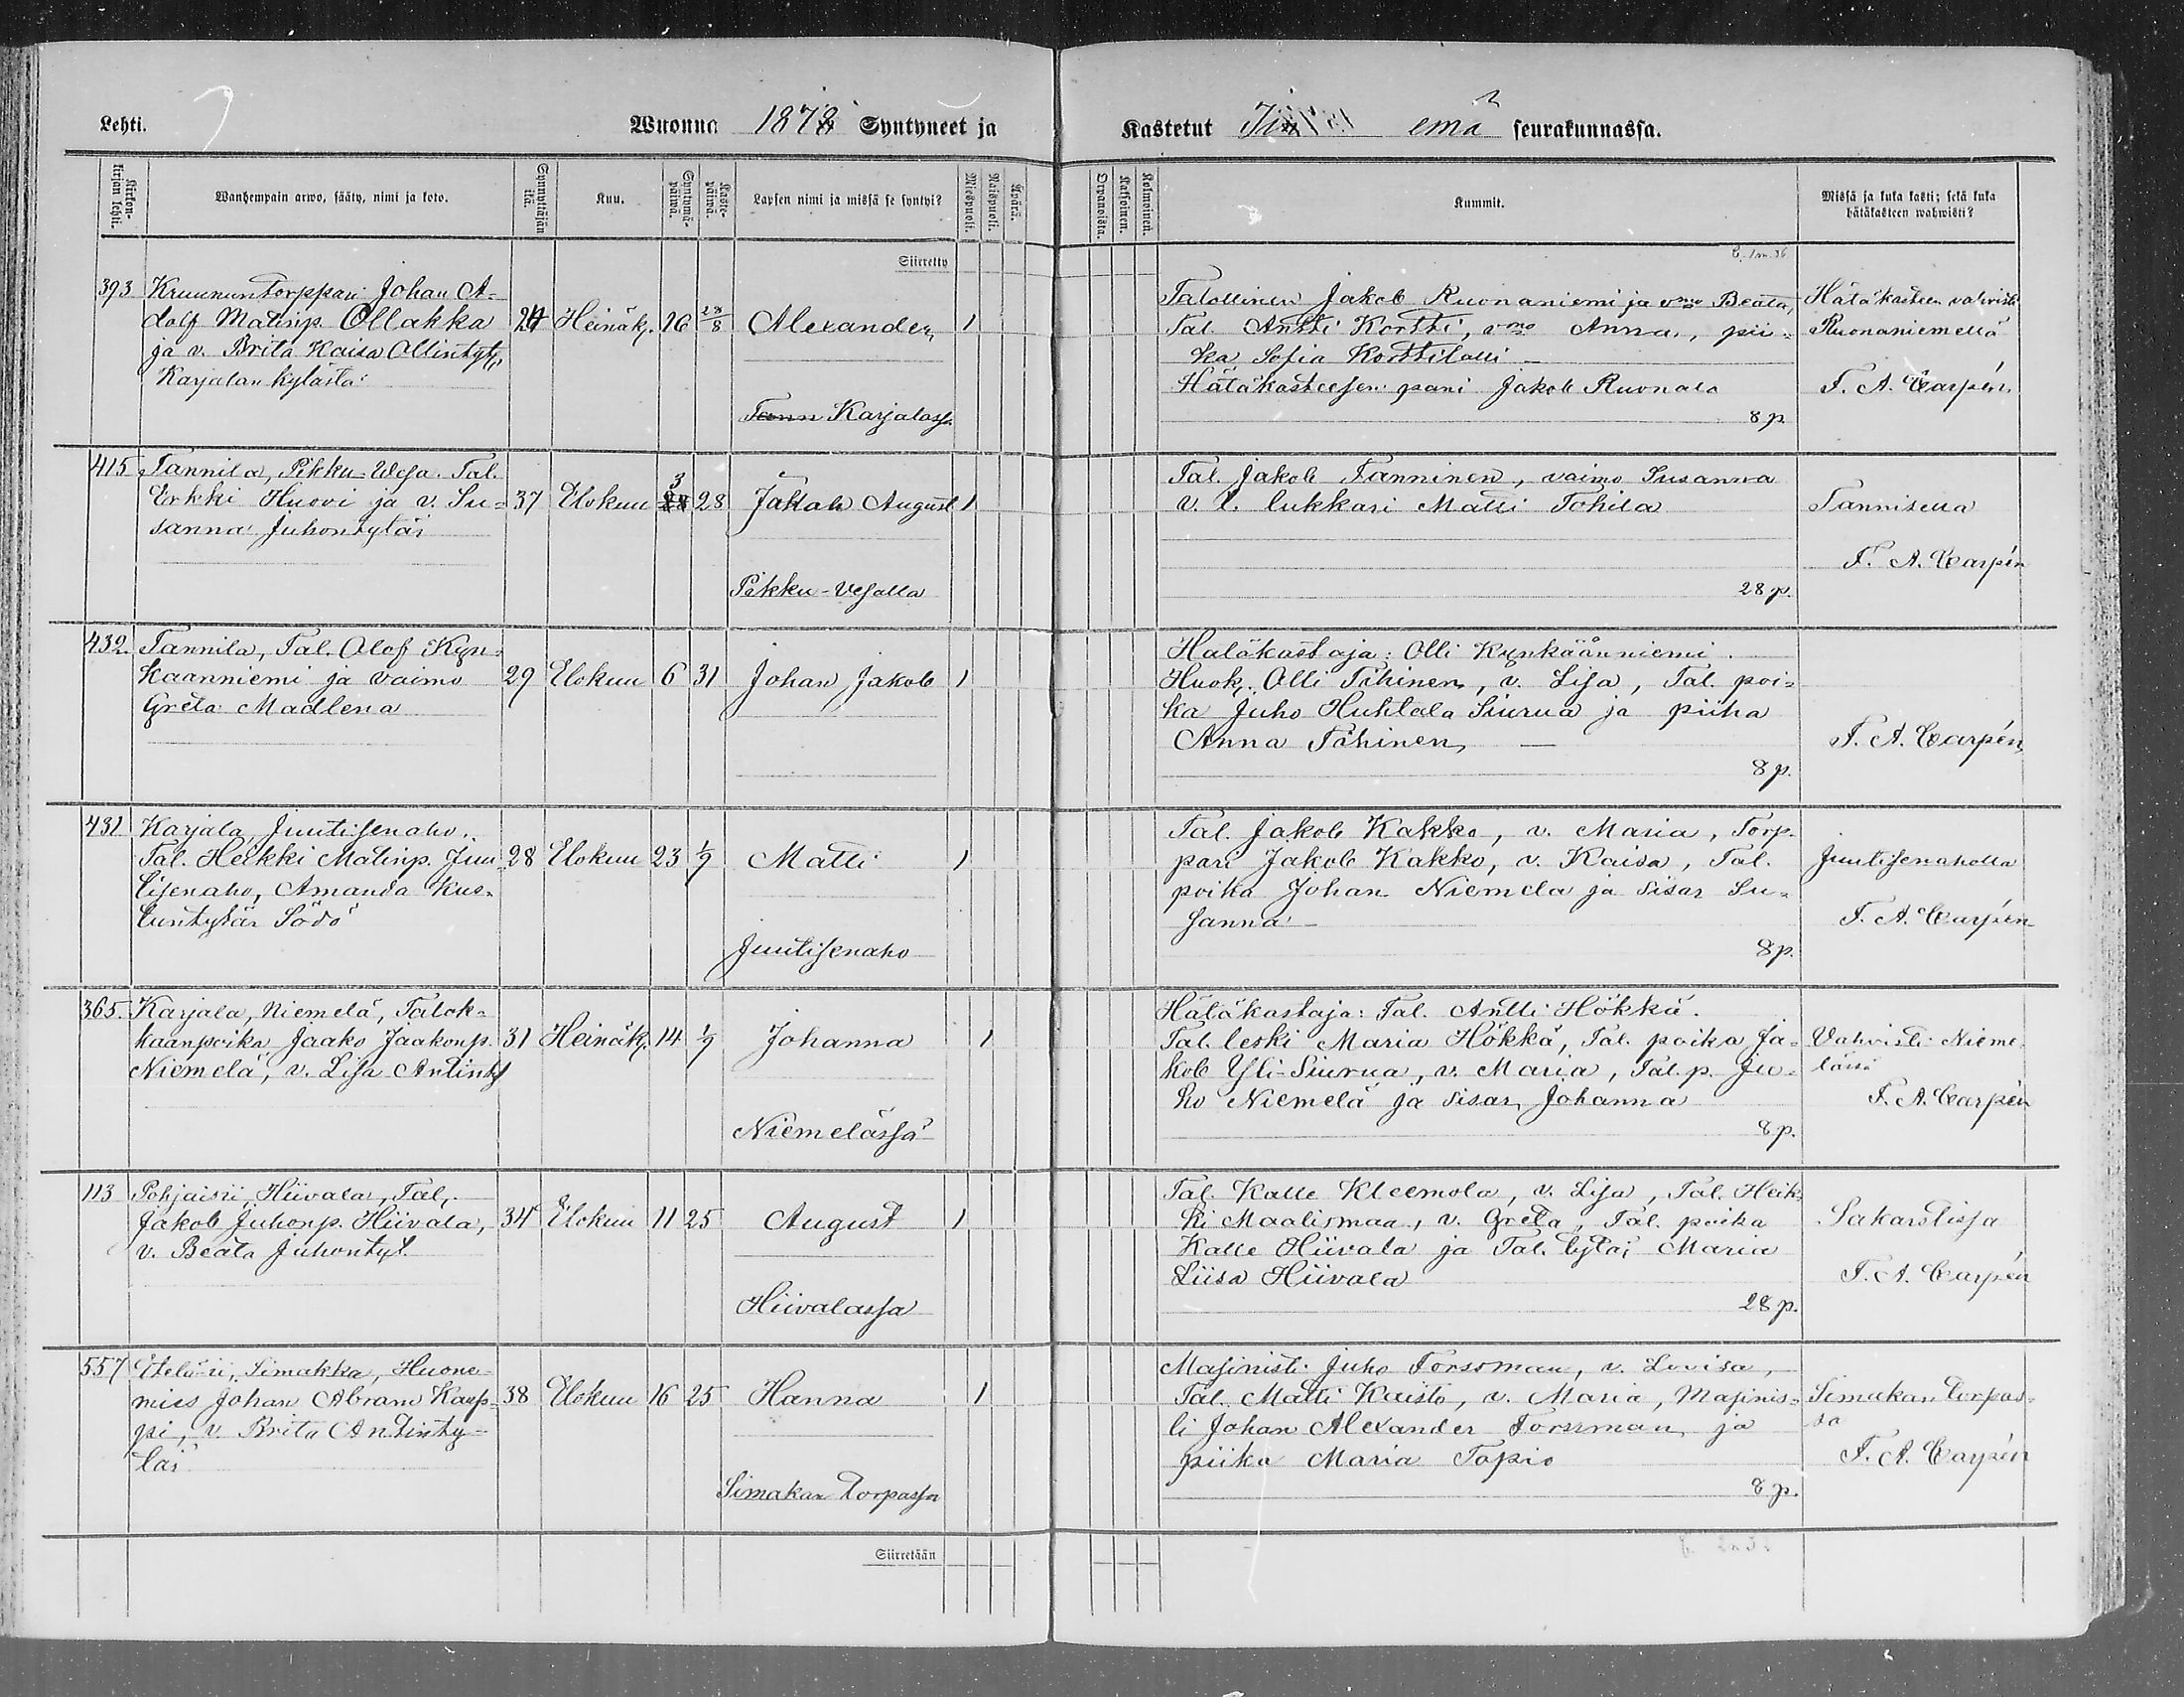 Lehti.
Wuonna 1878 Syntyneet ja
Kastetut Iin emä seurakunnassa.
Kirkon-kirjan lehti.
Wanhempain arwo, sääty, nimi ja koto.
Synnyttäjän ikä.
Kuu.
Syntymä-päiwä.
Kaste-päiwä.
Lapsen nimi ja missä se syntyi?
Miespuoli.
Waimopuoli.
Äpärä.
Orpanoista.
Kaksoinen.
Kolmoinen.
Kummit.
Missä ja kuka kasti; sekä kuka
hätäkasteen wahwisti?
Siirretty
393 Kruununtorppari Johan A-
dolf Matinp. Ollakka 24 Heinäk. 16 28/8 Alexander 1
ja v. Brita Kaisa Ollintyt,
Karjalan kylästä
Tann Karjalass.
Talollinen Jakob Ruonaniemi ja vmo Beata,
Tal Antti Kortti, vmo Anna, pii-
ka Sofia Korttilalli —
Hätäkasteesen pani Jakob Ruonala
8 p.
Hätäkasteen vahvisti
Ruonaniemellä
F. A. Carpén.
415 Tannila, Pikku-Vesa. Tal.
Erkki Huovi ja v. Su- 37 Elokuu 3 28 28 Jakob August 1
sanna Juhontytär
Pikku-Vesalla
Tal. Jakob Tanninen, vaimo Susanna
v. t. lukkari Matti Tohila
28 p.
Tannisella
F. A. Carpén
432. Tannila, Tal. Olof Kyn-
kaanniemi ja vaimo 29 Elokuu 6 31 Johan Jakob 1
Greta Madlena
Hätäkastaja: Olli Kynkäänniemi.
Huok. Olli Tihinen, v. Lisa, Tal. poi-
ka Juho Huhtala Siurua ja piika
Anna Tihinen, —
8 p.
F. A. Carpén
431 Karjala, Juutisenaho.
Tal. Heikki Matinp. Juu- 28 Elokuu 23 1/9 Matti 1
tisenaho, Amanda Kus-
tuntytär Södö
Juutisenaho
Tal. Jakob Kakko, v. Maria, Torp-
pari Jakob Kakko, v. Kaisa, Tal.
poika Johan Niemela ja sisar Su-
sanna —
8 p.
Juutisenaholla
F. A. Carpén
365. Karjala, Niemelä, Talok-
kaanpoika Jaako Jaakonp. 31 Heinäk. 14 1/9 Johanna 1
Niemelä, v. Lisa Antint.
Niemelässä
Hätäkastaja: Tal. Antti Hökkä.
Tal. leski Maria Hökkä, Tal. poika Ja-
kob Yli-Siurua, v. Maria, Tal. p. Ju-
ho Niemelä ja sisar Johanna
8 p.
Vahvisti Nieme-
lässä
F. A. Carpén
113 Pohjaisii, Hiivala, Tal,
Jakob Juhonp. Hiivala, 34 Elokuu 11 25 August 1
v. Beata Juhontyt.
Hiivalassa
Tal. Kalle Kleemola, v. Lisa, Tal. Heik-
ki Maalismaa, v. Greta, Tal. poika
Kalle Hiivala ja Tal. tytär Maria
Liisa Hiivala
28 p.
Sakaristissa
F. A. Carpén
557 Etelä-ii, Simakka, Huone-
mies Johan Abram Karp- 38 Elokuu 16 25 Hanna 1
pi, v. Brita Antinty-
tär
Simakan torpassa
Masinisti Juho Forssman, v. Lovisa,
Tal. Matti Kaisto, v. Maria, Masinis-
ti Johan Alexander Forssman ja
piika Maria Tapio
8 p.
Simakan torpas-
sa
F. A. Carpén
Siirretään